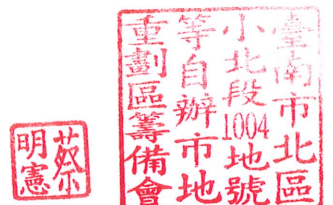 臺南市北區
小北段1004地號
等自辦市地
重劃區籌備會
蔡
明憲